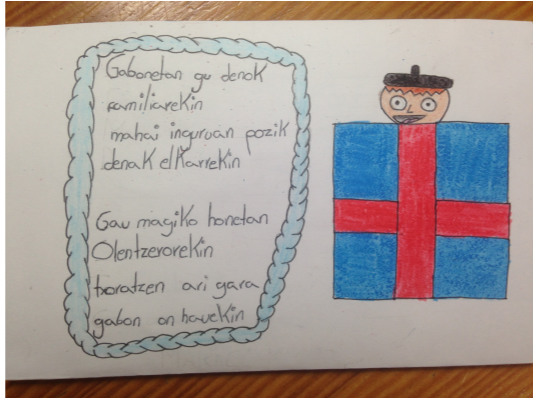 Gabonetan gu denok
familiarekin
mahai inguruan pozik
denak elkarrekin
Gau magiko honetan
Olentzerorekin
txoratzen ari gara
gabon on hauekin